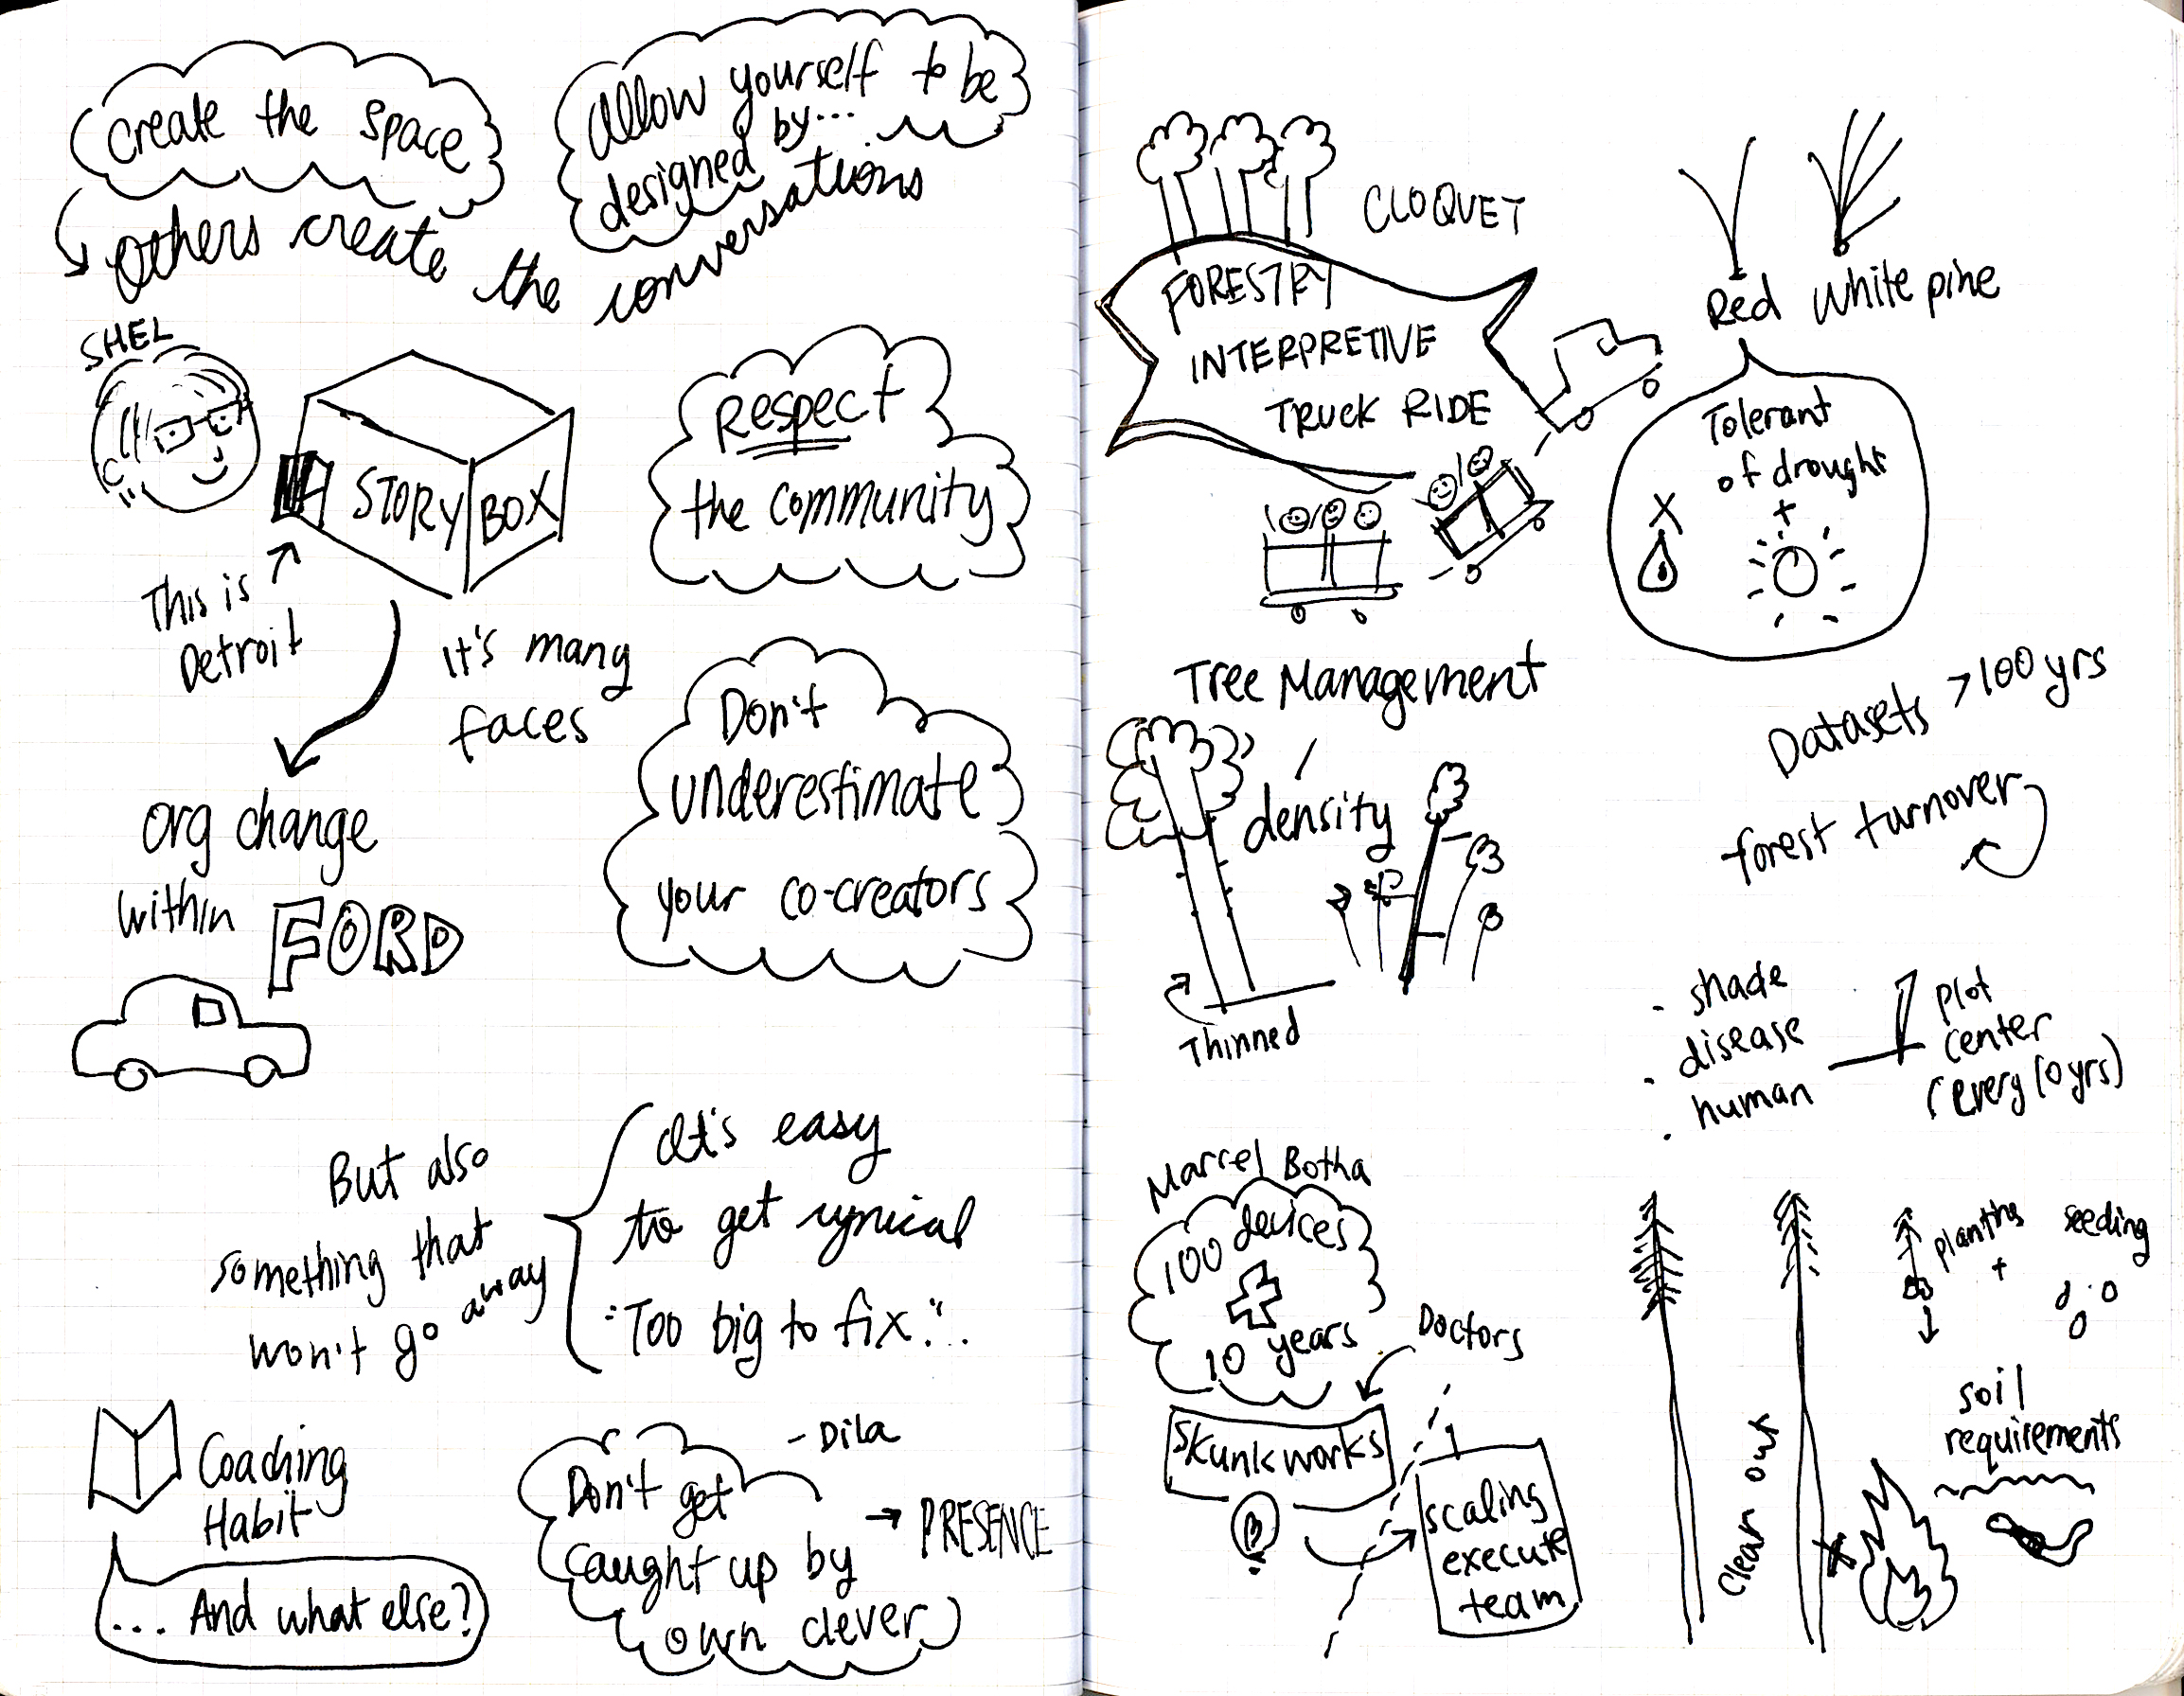 Create the space
Others create the conversations
Allow yourself to be
designed by...
SHEL
STORY BOX
This is
Detroit
It's many
faces
Respect
the community
Don't
underestimate
your co-creators
Org change
within
FORD
But also
something that
won't go away
It's easy
to get cynical
"Too big to fix"...
Coaching
Habit
... And what else?
- Dila
Don't get
caught up by
own clever
→ PRESENCE
CLOQUET
FORESTRY
INTERPRETIVE
TRUCK RIDE
Red White pine
Tolerant
of drought
+
Tree Management
density
Thinned
Datasets >100 yrs
forest turnover
shade
disease
human
plot
center
(every 10 yrs)
Marcel Botha
100 devices
10 years
Doctors
Skunkworks
scaling
execute
team
+
seeding
Clear out
soil
requirements